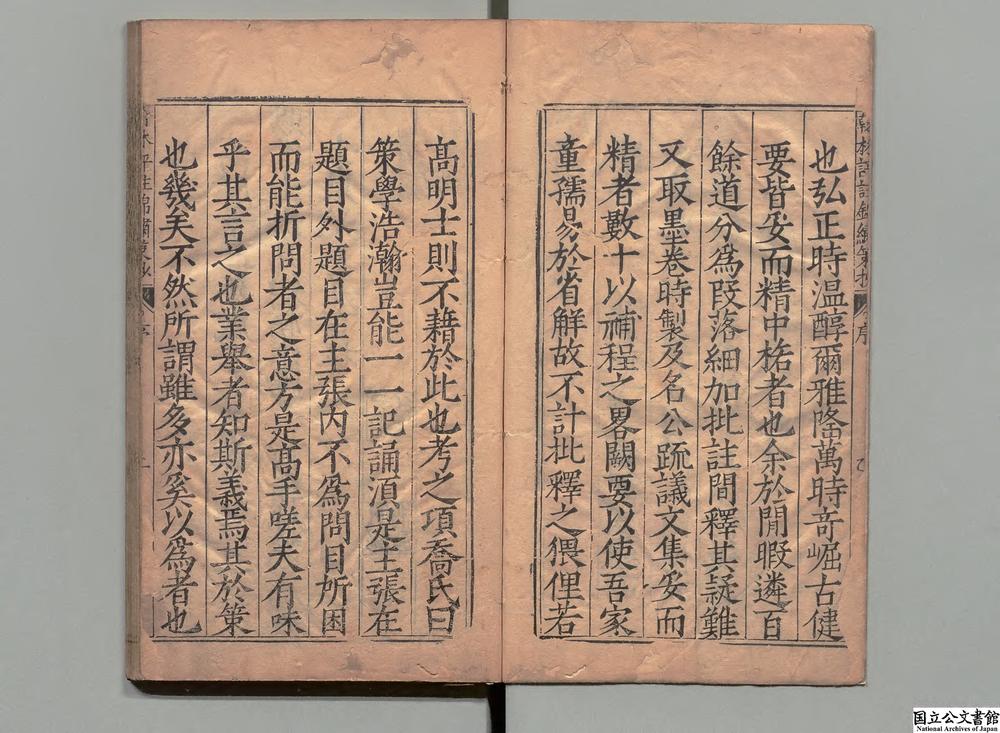 也弘正時溫醇爾雅隆萬時奇崛古健
要皆妥而精中栝者也余於閒暇遴百
餘道分為叚落細加批註間釋其疑難
又取墨卷時製及名公䟽議文集妥而
精者數十以補程之畧闕要以使吾家
童孺易於省解故不計批釋之猥俚若
序
髙明士則不藉於此也考之項喬氏曰
策學浩瀚豈能一一記誦湏是主張在
題目外題目在主張內不為問目所困
而能折問者之意方是髙手嗟夫有味
乎其言之也業舉者知斯義焉其於策
也幾矣不然所謂雖多亦奚以為者也
国立公文書館
National Archives of Japan